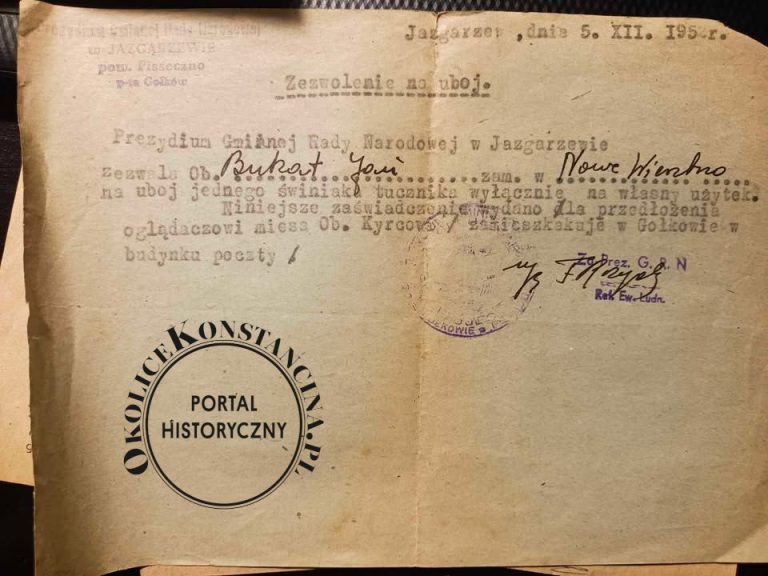 Prezydium Gminnej Rady Narodowej
w JAZGARZEWIE
pow. Piaseczno
p-ta Gołków
Jazgarzew, dnia 5. XII. 195 r.
Zezwolenie na uboj.
Prezydium Gminnej Rady Narodowej w Jazgarzewie
zezwala Ob. Bukat Jan zam. w Nowe Wierzbno
na uboj jednego świniaka tucznika wyłącznie na własny użytek.
Niniejsze zaświadczenie wydano dla przedłożenia
oglądaczowi miesa Ob. Kyrcowi / zamieszkakuje w Gołkowie w
budynku poczty /
Za Prez. G. R. N
Ref. Ew. Ludn.
OKOLICEKONSTANCINA.PL
PORTAL
HISTORYCZNY